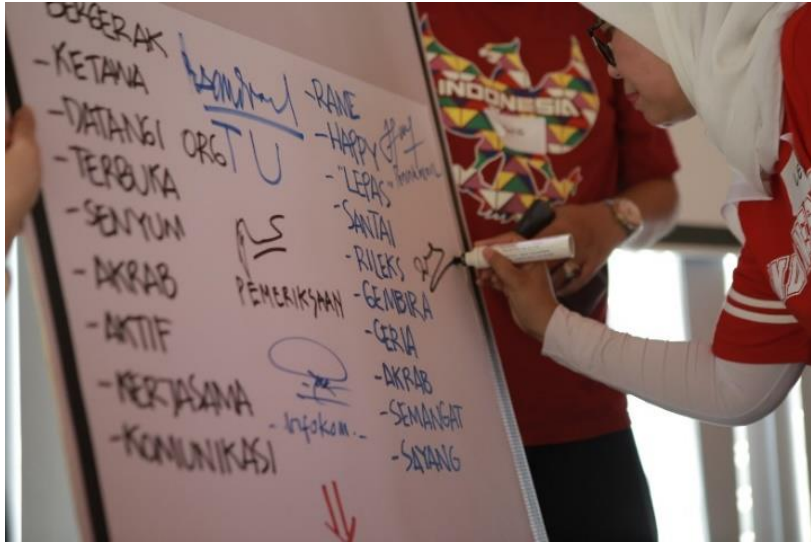 BERGERAK
-KETANA
-DATANGI ORG
-TERBUKA
-SENYUM
-AKRAB
-AKTIF
-KERJASAMA
-KOMUNIKASI
TU
PEMERIKSAAN
-Infokom.-
-RAME
-HAPPY
-LEPAS
-SANTAI
-RILEKS
-GEMBIRA
-CERIA
-AKRAB
-SEMANGAT
-SAYANG
INDONESIA